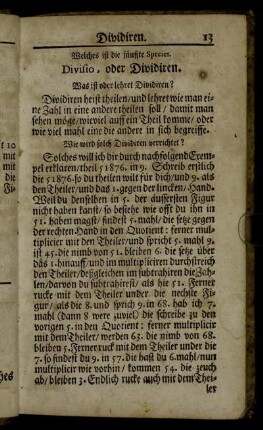 Dividiren. 13
Welches ist die fünffte Species.
Divisio, oder Dividiren.
Was ist oder lehret Dividiren?
Dividiren heist theilen/und lehret wie man ei-
ne Zahl in eine andere theilen soll / damit man
sehen möge/wieviel auff ein Theil komme/ oder
wie viel mahl eine die andere in sich begreiffe.
Wie wird solch Dividiren verrichtet?
Solches will ich dir durch nachfolgend Exem-
pel erklären/theil 51876. in 9. Schreib erstlich
die 51876. so du theilen wilt für dich/und 9. als
den Theiler/und das 1. gegen der lincken/Hand.
Weil du denselben in 5. der äusersten Figur
nicht haben kanst/ so besehe wie offt du ihn in
51. haben magst/ findest 5. mahl/ die setze gegen
der rechten Hand in den Quotient: ferner mul-
tiplicier mit den Theiler/und spricht 5. mahl 9.
ist 45. die nimb von 51. bleiben 6. die setze über
das 1. hinauff/ und im multipliciren durchstreich
den Theiler/deßgleichen im subtrahiren die Zah-
len/darvon du subtrahirest/ als hie 51. Ferner
rucke mit dem Theiler under die nechste Fi-
gur/als die 8. und sprich 9. in 68. hab ich 7.
mahl (dann 8 were zuviel) die schreibe zu den
vorigen 5. in den Quotient: ferner multiplicir
mit dem Theiler/ werden 63. die nimb von 68.
bleiben 5. Ferner ruck mit dem Theiler under die
7. so findest du 9. in 57. die hast du 6. mahl/nun
multiplicir wie vorhin/ kommen 54. die zeuch
ab/bleiben 3. Endlich rucke auch mit dem Thei-
ler